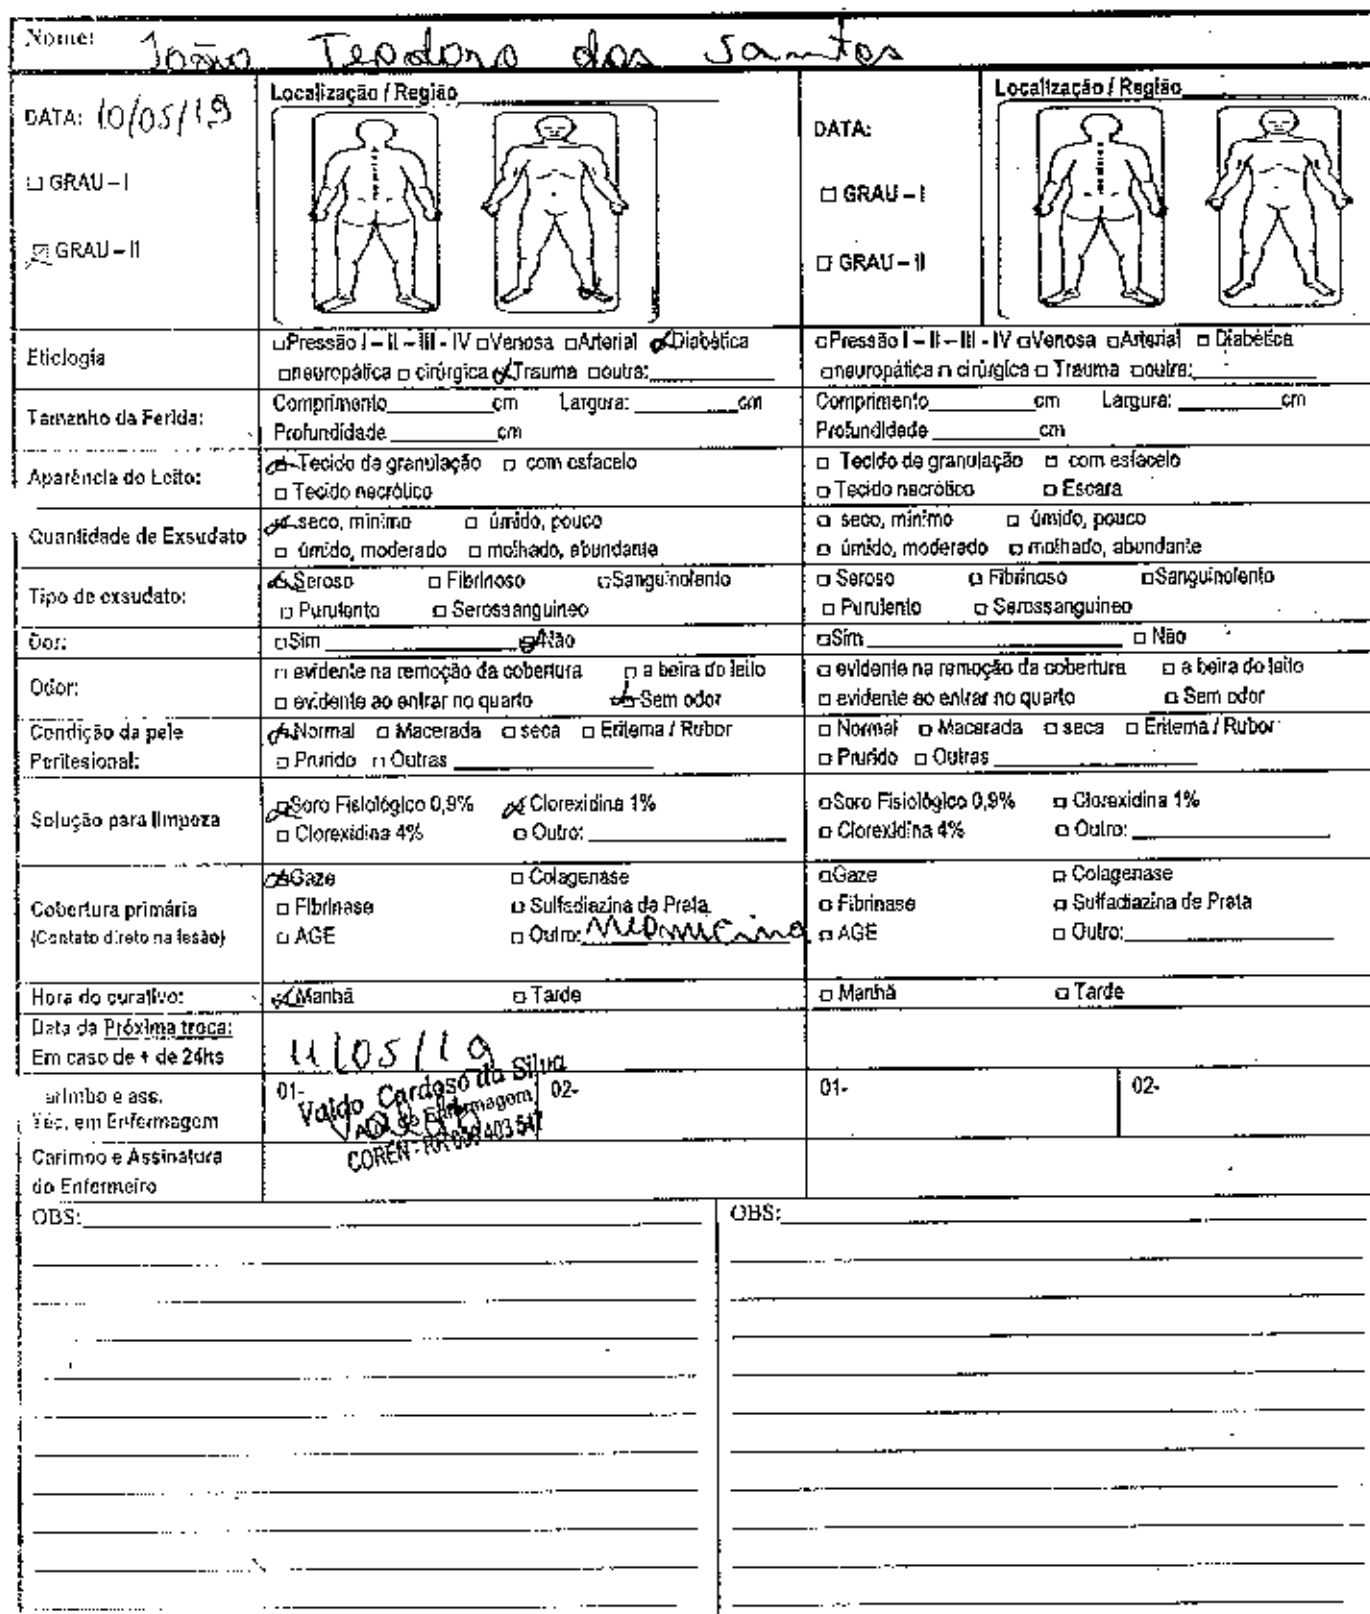 Nome: João Teodoro dos Santos
DATA: 10/05/19
□ GRAU – I
☒ GRAU – II
Localização / Região
DATA:
□ GRAU – I
□ GRAU – II
Localização / Região
Etiologia
□Pressão I – II – III - IV □Venosa □Arterial ☒Diabética
□neuropática □ cirúrgica ☒Trauma □outra:
□Pressão I – II – III - IV □Venosa □Arterial □ Diabética
□neuropática □ cirúrgica □ Trauma □outra:
Tamanho da Ferida:
Comprimento cm Largura: cm
Profundidade cm
Comprimento cm Largura: cm
Profundidade cm
Aparência do Leito:
☒ Tecido de granulação □ com esfacelo
□ Tecido necrótico
□ Tecido de granulação □ com esfacelo
□ Tecido necrótico □ Escara
Quantidade de Exsudato
☒ seco, mínimo □ úmido, pouco
□ úmido, moderado □ molhado, abundante
□ seco, mínimo □ úmido, pouco
□ úmido, moderado □ molhado, abundante
Tipo de exsudato:
☒ Seroso □ Fibrinoso □Sanguinolento
□ Purulento □ Serossanguineo
□ Seroso □ Fibrinoso □Sanguinolento
□ Purulento □ Serossanguineo
Dor:
□Sim ☒Não
□Sim □ Não
Odor:
□ evidente na remoção da cobertura □ a beira do leito
□ evidente ao entrar no quarto ☒ Sem odor
□ evidente na remoção da cobertura □ a beira do leito
□ evidente ao entrar no quarto □ Sem odor
Condição da pele
Perilesional:
☒ Normal □ Macerada □ seca □ Eritema / Rubor
□ Prurido □ Outras
□ Normal □ Macerada □ seca □ Eritema / Rubor
□ Prurido □ Outras
Solução para limpeza
☒Soro Fisiológico 0,9% ☒ Clorexidina 1%
□ Clorexidina 4% □ Outro:
□Soro Fisiológico 0,9% □ Clorexidina 1%
□ Clorexidina 4% □ Outro:
Cobertura primária
(Contato direto na lesão)
☒Gaze □ Colagenase
□ Fibrinase □ Sulfadiazina de Prata
□ AGE □ Outro:
□Gaze □ Colagenase
□ Fibrinase □ Sulfadiazina de Prata
□ AGE □ Outro:
Hora do curativo:
☒ Manhã □ Tarde
□ Manhã □ Tarde
Data da Próxima troca:
Em caso de + de 24hs
11/05/19
arimbo e ass.
Téc. em Enfermagem
01-
Valdo Cardoso da Silva
Aux. de Enfermagem
COREN - RR
02-
01-
02-
Carimbo e Assinatura
do Enfermeiro
OBS:
OBS: